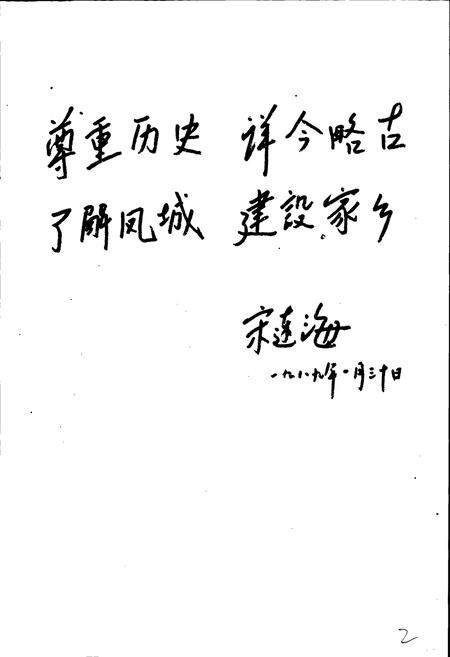 尊重历史 详今略古
了解凤城 建設家乡
宋远海
一九八九年一月三十日
2